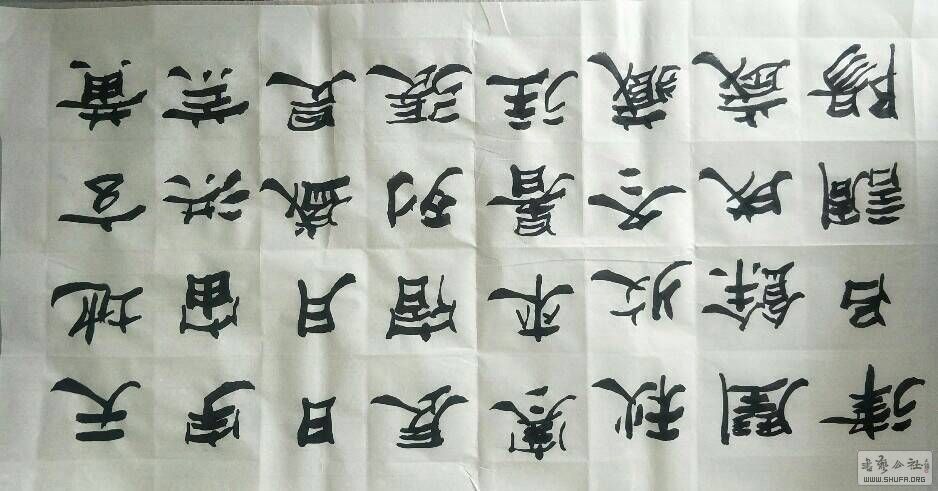 天地玄黃
宇宙洪荒
日月盈昃
辰宿列張
寒來暑往
秋收冬藏
閏餘成歲
律呂調陽
書藝公社
WWW.SHUFA.ORG